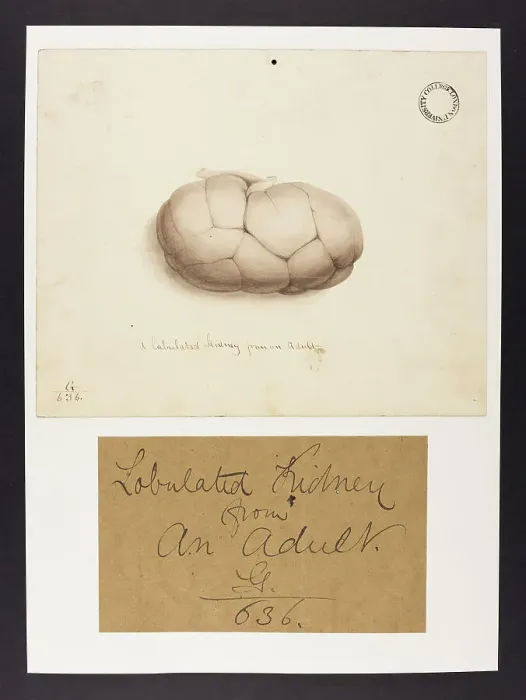 UNIVERSITY COLLEGE LONDON
A lobulated Kidney from an Adult
G
636.
Lobulated Kidney
from
An Adult.
G.
636.